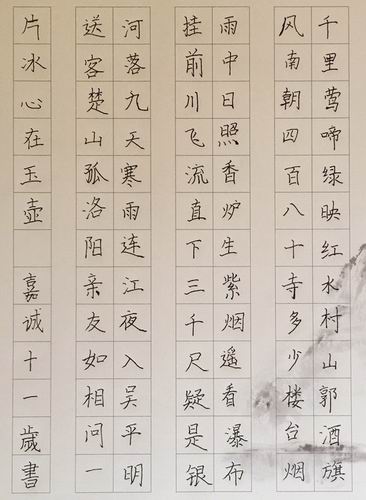 千里莺啼绿映红水村山郭酒旗
风南朝四百八十寺多少楼台烟
雨中日照香炉生紫烟遥看瀑布
挂前川飞流直下三千尺疑是银
河落九天寒雨连江夜入吴平明
送客楚山孤洛阳亲友如相问一
片冰心在玉壶 嘉诚十一歲書